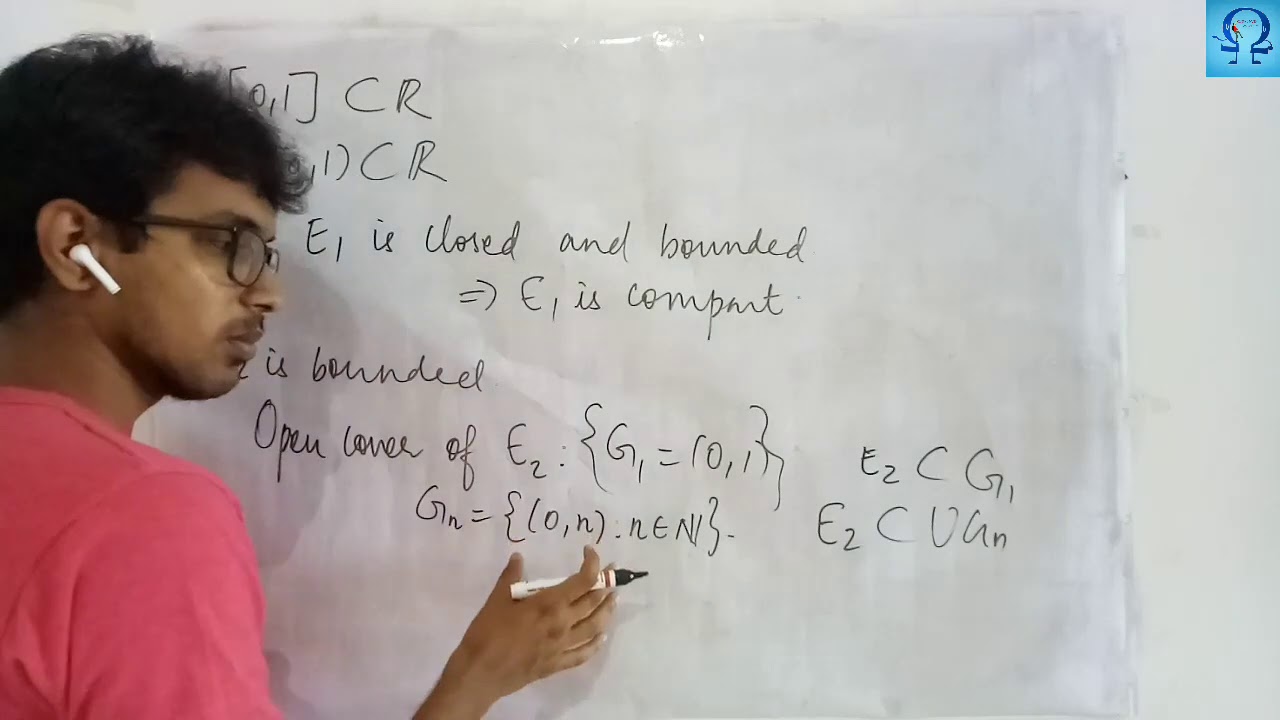 [0,1] ⊂ ℝ
,1) ⊂ ℝ
E₁ is closed and bounded
⇒ E₁ is compact.
is bounded.
Open cover of E₂ : {G₁ = (0,1)} E₂ ⊂ G₁
Gₙ = {(0,n) : n ∈ ℕ}. E₂ ⊂ ∪Gₙ